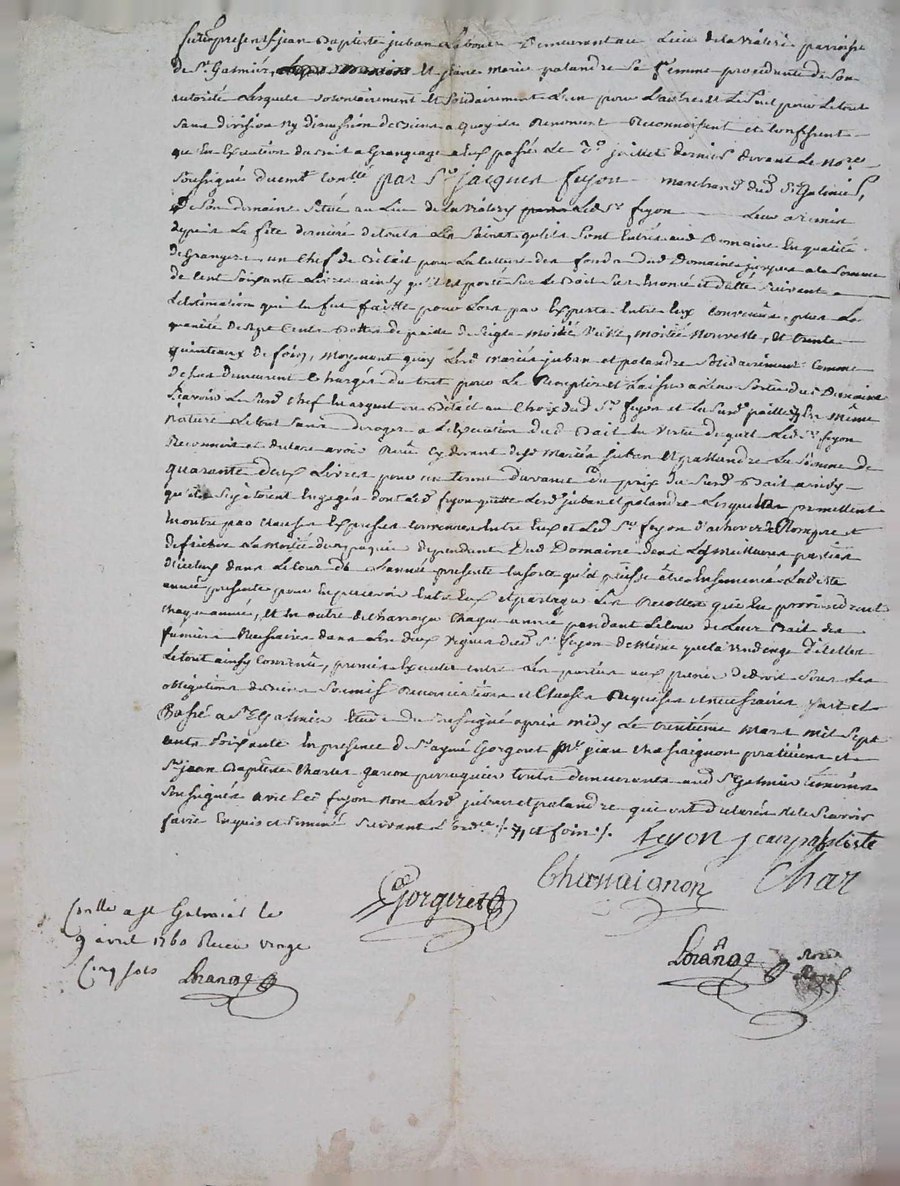 furent presents jean Baptiste juban Laboureur Demeurant au Lieu de la Vialere parroisse
de St. Galmier, Et jeane marie palandre sa femme procedante de Son
autorité Lesquels volontairement Et Solidairement L'un pour L'autre et Le Seul pour Le tout
sans division Ny discussion de Biens a quoy ils Renoncent Reconnoissent et Confessent
que En Execution du Bail a Grangeage a Eux passée Le juillet dernier devant Le Nore.
soussigné duemt. Contllé par Sr. jacques feyon marchand dud. St. Galmier,
De Son domaine Situé au Lieu de La Vialery Led. Sr. feyon Leur a remis
depuis La fête derniere de touts Les Saints qu'ils sont Entrés aud. Domaine En qualité
de Grangers un Chef de Bétail pour La Culture des fonds dud. Domaine jusques a la Somme
de Cent Soixante Livres ainsy qu'il est porté sur Le Bail Sus Enoncé et datté Suivant
L'estimation qui En fut faitte pour Lors par Experts Entre Eux Convenus, plus La
quantité de Sept Cents Bottes de paide de Seigle moitié Vielle, moitié Nouvelle, Et trente
quintaux de foin, moyenant quoy Lesd. mariés juban et palandre Solidairement Comme
dessus demeurent Chargés du tout pour Le Remptir et Laisser a Leur Sortie dud. Domaine
Sçavoir Le Susd. Chef En argent ou Bétail au Choix dud. Sr. feyon et La Susd. paille En même
nature Le tout Sans deroger a L'execution dud. Bail En Vertu duquel Led. Sr. feyon
Reconnoit et declare avoir Reçu Cy devant desd. mariés juban Et pallandre La Somme de
quarante deux Livres pour un terme d'avance du prix du Susd. Bail ainsy
qu'ils S'y étoient Engagés dont Led. feyon quitte Lesd. juban et palandre Lesquels promettent
En outre par Clauses Expresses Convenues Entre Eux et Led. Sr. feyon d'achever de Rompre et
defricher La moitié des paquis dependants Dud. Domaine dans Les meilleures parties
d'iceluy dans Le Cours de L'année presente En sorte qu'il puisse être Ensemencé Ladite
année presente pour En percevoir Entre Eux et partager Les Recoltes qui En proviendront
chaque année, Et En outre de Charroyer Chaque année pendant Le tems de Leur Bail des
fumiers Necessaires dans Les deux vignes dud. Sr. feyon de même que la vendange d'icelles
Le tout ainsy Convenu, promis Executer entre Les parties aux peines de droit Sous Les
obligations de biens Soumis Renonciations et Clauses Requises et necessaires fait et
Passé a St. Galmier Etude du Soussigné apres midy Le trentiéme mars mil Sept
cents Soixante En presence de Sr. aymé Gorgeret Me. jean Chassaignon praticiens et
Sr. jean Baptiste Charles garon perruquier touts demeurants aud. St. Galmier temoins
Soussignés avec Led. feyon Non Lesd. juban et palandre qui ont declarés ne le Sçavoir
faire Enquis et Sommés Suivant L'ordce. /. et foin /.
feyon jean baptiste
Gorgeret Chassaignon Char
Lorange Nore Royal
Contlle a St Galmier le
9 avril 1760 Recu vingt
Cinq sols Lorange